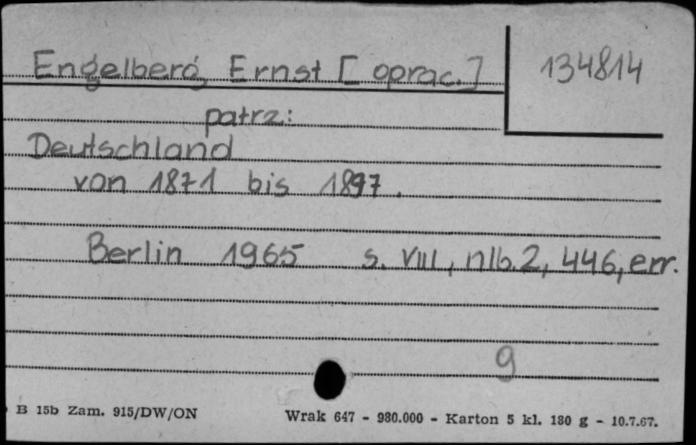 Engelberg, Ernst [oprac.]
134814
patrz:
Deutschland
von 1871 bis 1897.
Berlin 1965 s. VIII, nlb. 2, 446, err.
9
B 15b Zam. 915/DW/ON
Wrak 647 - 980.000 - Karton 5 kl. 180 g - 10.7.67.